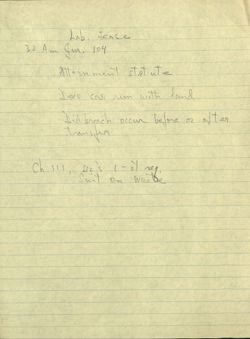 Lab. Lease
32 Am Jur. 104
Attornment statute
Does cov run with land
Did breach occur before or after
transfer
Ch. 111,
Suit on Waste